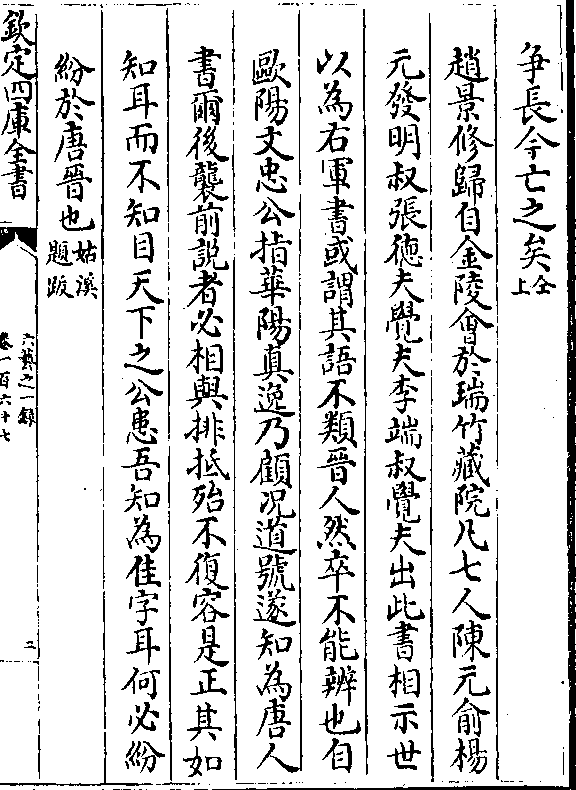 争長今亡之矣仝上
趙景修歸自金陵會於瑞竹藏院凡七人陳元俞楊
元發明叔張徳夫覺夫李端叔覺夫出此書相示世
以為右軍書或謂其語不類晉人然卒不能辨也自
歐陽文忠公指華陽真逸乃顧况道號遂知為唐人
書爾後襲前説者必相與排抵殆不復容是正其如
知耳而不知目天下之公患吾知為佳字耳何必紛
紛於唐晉也姑溪題跋
欽定四庫全書
六藝之一録
卷一百六十七
二